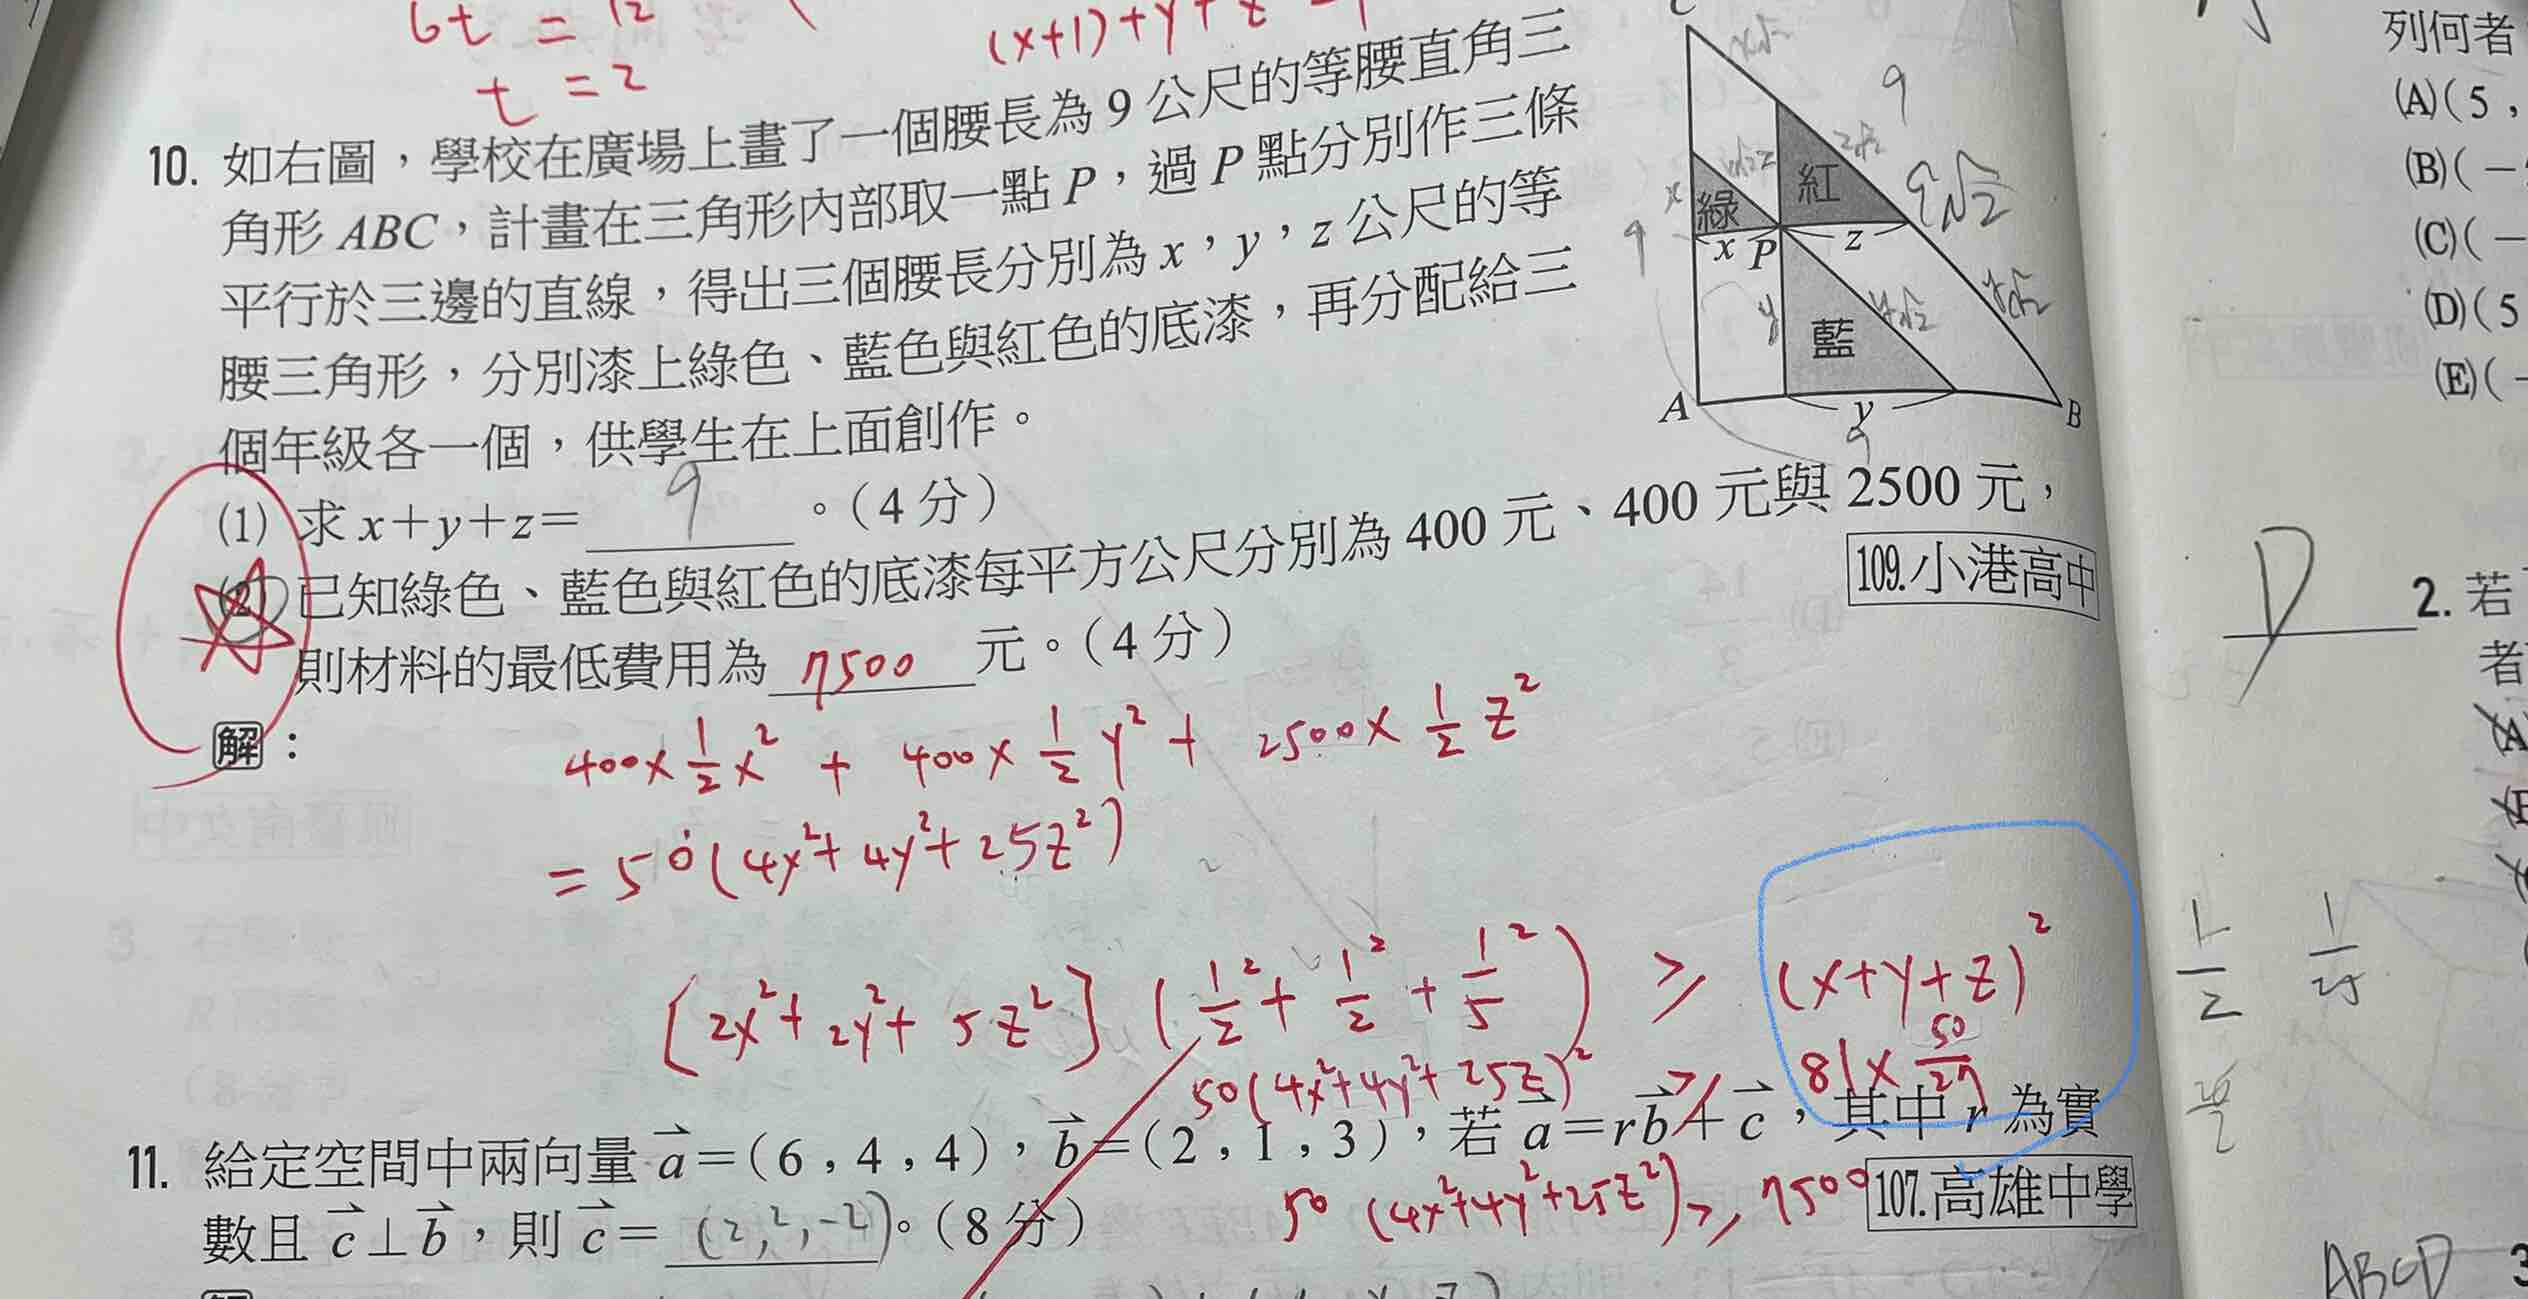 6t = 12
t = 2
(x+1)+y+z
10. 如右圖，學校在廣場上畫了一個腰長為 9 公尺的等腰直角三
角形 ABC，計畫在三角形內部取一點 P，過 P 點分別作三條
平行於三邊的直線，得出三個腰長分別為 x，y，z 公尺的等
腰三角形，分別漆上綠色、藍色與紅色的底漆，再分配給三
個年級各一個，供學生在上面創作。
C
x√2
9
紅
z√2
9√2
綠
x
x P z
9
y
y√2
y√2
藍
A y B
9
(1) 求 x+y+z= 9 。(4 分)
(2) 已知綠色、藍色與紅色的底漆每平方公尺分別為 400 元、400 元與 2500 元，
則材料的最低費用為 7500 元。(4 分)
109.小港高中
解：
400×1/2x² + 400×1/2y² + 2500×1/2z²
= 50(4x²+4y²+25z²)
[2x²+2y²+5z²](1/2²+1/2²+1/5²) ≥ (x+y+z)²
50(4x²+4y²+25z)² ≥ 81×50/27
50(4x²+4y²+25z²) ≥ 7500
11. 給定空間中兩向量 a⃗=(6，4，4)，b⃗=(2，1，3)，若 a⃗=rb⃗+c⃗，其中 r 為實
數且 c⃗⊥b⃗，則 c⃗= (2,2,-2)。(8 分)
107.高雄中學
列何者
(A)(5，
(B)(−
(C)(−
(D)(5
(E)(−
D
2. 若
者
1/2 1/25
ABCD 3